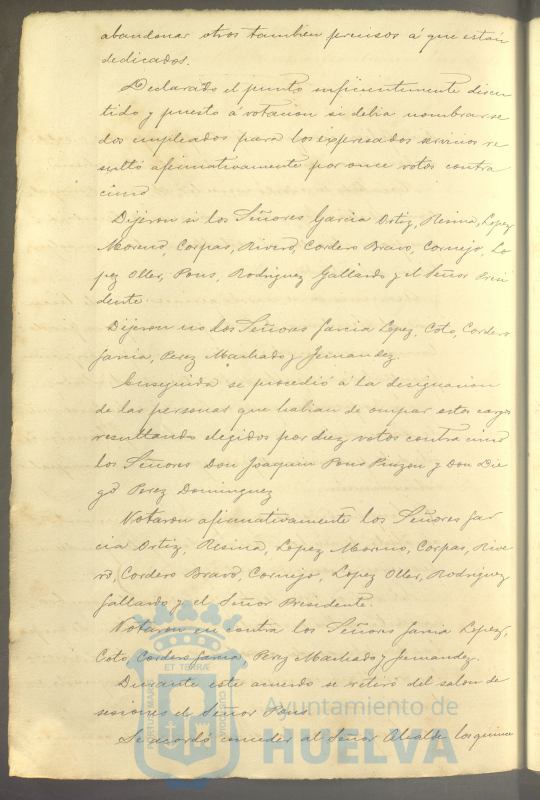 abandonar otros tambien precisos á que están
dedicados.
Declarado el punto suficientemente discu
tido y puesto á votacion si debia nombrarse
dos empleados para los expresados servicios re
sultó afirmativamente por once votos contra
cinco
Dijeron si los Señores Garcia Ortiz, Resina, Lopez
Moreno, Corpas, Rivero, Cordero Bravo, Cornejo, Lo
pez Oller, Pons, Rodriguez Gallardo y el Señor Presi
dente.
Dijeron no los Señores Garcia Lopez, Coto, Cordero
Garcia, Perez Machado y Fernandez.
Enseguida se procedió á la designacion
de las personas que habian de ocupar estos cargos
resultando elegidos por diez votos contra cinco
los Señores Don Joaquin Pons Pinzon y Don Die
go Perez Dominguez
Votaron afirmativamente los Señores Gar
cia Ortiz, Resina, Lopez Moreno, Corpas, Rive
ro, Cordero Bravo, Cornejo, Lopez Oller, Rodriguez
Gallardo y el Señor Presidente.
Votaron en contra los Señores Garcia Lopez,
Coto, Cordero Garcia, Perez Machado y Fernandez.
Durante este acuerdo se retiró del salon de
sesiones el Señor Pons.
Se acordó conceder al Señor Alcalde los quince
PORTUS MARIS
ET TERRÆ
CUSTODIA
Ayuntamiento de
HUELVA